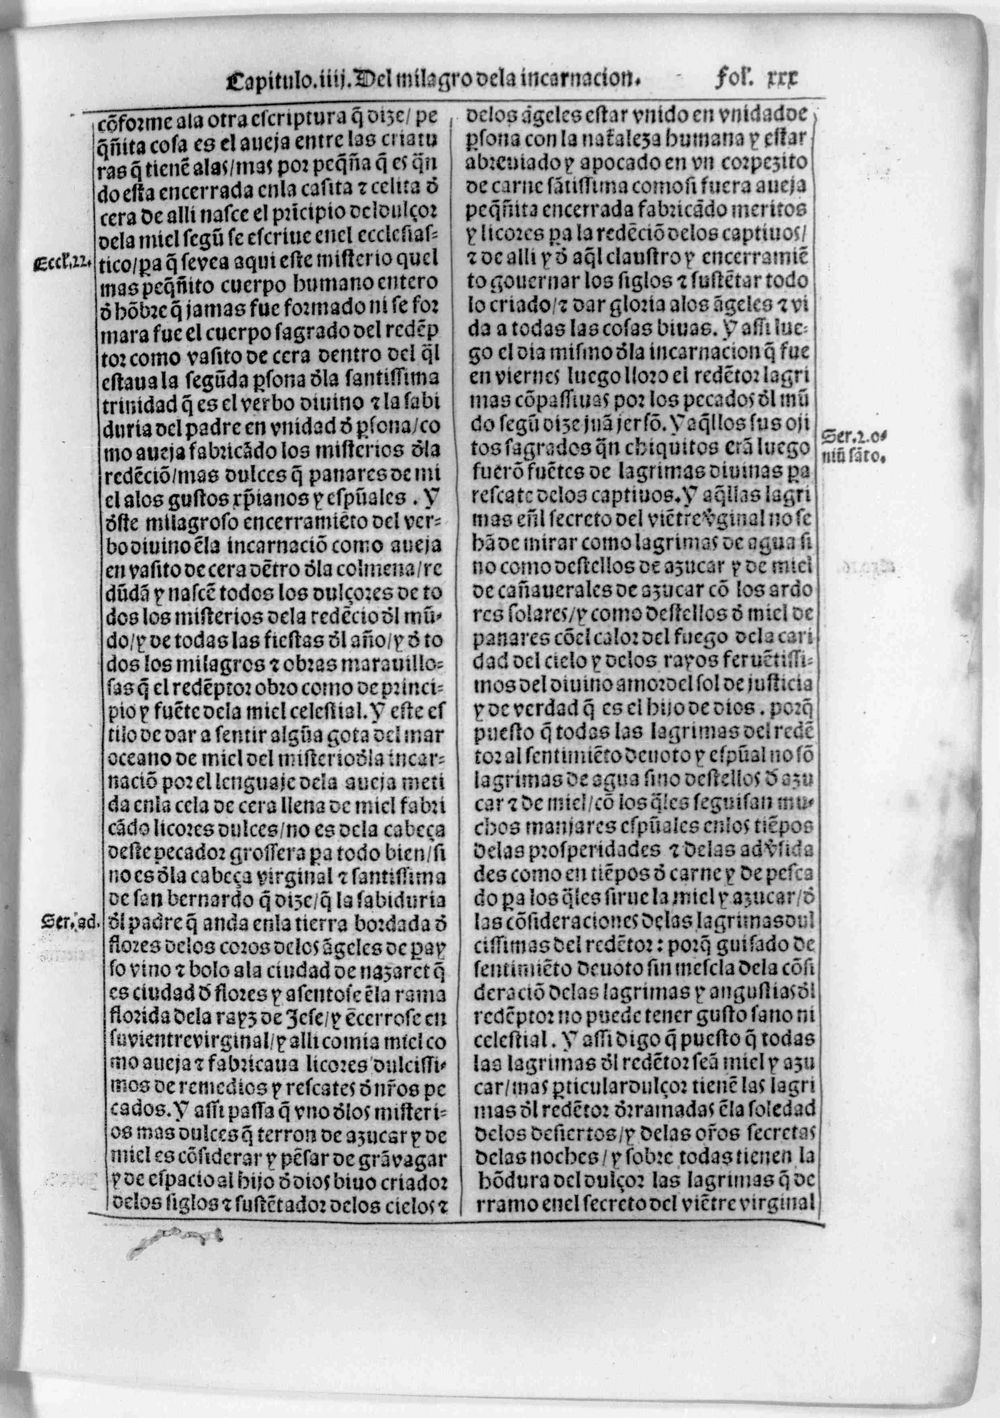 Capitulo.iiij.Del milagro dela incarnacion. fol. xxx
cõforme ala otra escriptura q̃ dize/ pe
q̃ñita cosa es el aueja entre las criatu
ras q̃ tienẽ alas/mas por peq̃ña q̃ es q̃n
do esta encerrada enla casita ⁊ celita ð
cera de alli nasce el prĩcipio deldulçor
dela miel segũ se escriue enel ecclesias-
Eccl̃.22.
tico/ꝑa q̃ sevea aqui este misterio quel
mas peq̃ñito cuerpo humano entero
ð hõbre q̃ jamas fue formado ni se for
mara fue el cuerpo sagrado del redẽp
tor como vasito de cera dentro del q̃l
estaua la segũda ꝑsona ðla santissima
trinidad q̃ es el verbo diuino ⁊ la sabi
duria del padre en vnidad ð ꝑsona/co
mo aueja fabricãdo los misterios ðla
redẽciõ/mas dulces q̃ panares de mi
el alos gustos xp̃ianos y esp̃uales . Y
ðste milagroso encerramiẽto del ver-
bo diuino ẽla incarnaciõ como aueja
en vasito de cera dẽtro ðla colmena/re
dũdã y nascẽ todos los dulçores de to
dos los misterios dela redẽciõ ðl mũ-
do/y de todas las fiestas ðl año/y ð to
dos los milagros ⁊ obras marauillo-
sas q̃ el redẽptor obro como de princi-
pio y fuẽte dela miel celestial. Y este es
tilo de dar a sentir algũa gota del mar
oceano de miel del misterio ðla incar-
naciõ por el lenguaje dela aueja meti
da enla cela de cera llena de miel fabri
cãdo licores dulces/no es dela cabeça
deste pecador grossera ꝑa todo bien/si
no es ðla cabeça virginal ⁊ santissima
de san bernardo q̃ dize/q̃ la sabiduria
Ser. ad.
ðl padre q̃ anda enla tierra bordada ð
flores delos coros delos ãgeles de pay
so vino ⁊ bolo ala ciudad de nazaret q̃
es ciudad ð flores y asentose ẽla rama
florida dela rayz de Jese/y ẽcerrose en
suvientrevirginal/y alli comia miel co
mo aueja ⁊ fabricaua licores dulcissi-
mos de remedios y rescates ð nr̃os pe
cados. Y assi passa q̃ vno ðlos misteri-
os mas dulces q̃ terron de azucar y de
miel es cõsiderar y pẽsar de grãvagar
y de espacio al hijo ð dios biuo criador
delos siglos ⁊ sustẽtador delos cielos ⁊
delos ãgeles estar vnido en vnidadde
ꝑsona con la nat̃aleza humana y estar
abreuiado y apocado en vn corpezito
de carne sãtissima comosi fuera aueja
peq̃ñita encerrada fabricãdo meritos
y licores ꝑa la redẽciõ delos captiuos/
⁊ de alli y ð aq̃l claustro y encerramiẽ
to gouernar los siglos ⁊ sustẽtar todo
lo criado/⁊ dar gloria alos ãgeles ⁊ vi
da a todas las cosas biuas. Y assi lue-
go el dia mismo ðla incarnacion q̃ fue
en viernes luego lloro el redẽtor lagri
mas cõpassiuas por los pecados ðl mũ
do segũ dize juã jersõ. Y aq̃llos sus oji
Ser.2.oᵐ
niũ sãto.
tos sagrados q̃n chiquitos erã luego
fuerõ fuẽtes de lagrimas diuinas ꝑa
rescate delos captiuos. Y aq̃llas lagri
mas eñl secreto del viẽtre v̉ginal no se
hã de mirar como lagrimas de agua si
no como destellos de azucar y de miel
de cañauerales de azucar cõ los ardo
res solares/y como destellos ð miel de
panares cõel calor del fuego dela cari
dad del cielo y delos rayos feruẽtissi-
mos del diuino amordel sol de justicia
y de verdad q̃ es el hijo de dios . porq̃
puesto q̃ todas las lagrimas del redẽ
tor al sentimiẽto deuoto y esp̃ual no sõ
lagrimas de agua sino destellos ð azu
car ⁊ de miel/cõ los q̃les seguisan mu-
chos manjares esp̃uales enlos tiẽpos
delas prosperidades ⁊ delas adv̉sida
des como en tiẽpos ð carne y de pesca
do ꝑa los q̃les sirue la miel y azucar/ð
las cõsideraciones delas lagrimasdul
cissimas del redẽtor: porq̃ guisado de
sentimiẽto deuoto sin mescla dela cõsi
deraciõ delas lagrimas y angustias ðl
redẽptor no puede tener gusto sano ni
celestial . Y assi digo q̃ puesto q̃ todas
las lagrimas ðl redẽtor seã miel y azu
car/mas ꝑticulardulçor tienẽ las lagri
mas ðl redẽtor ðrramadas ẽla soledad
delos desiertos/y delas or̃os secretas
delas noches/y sobre todas tienen la
hõdura del dulçor las lagrimas q̃ de
rramo enel secreto del viẽtre virginal